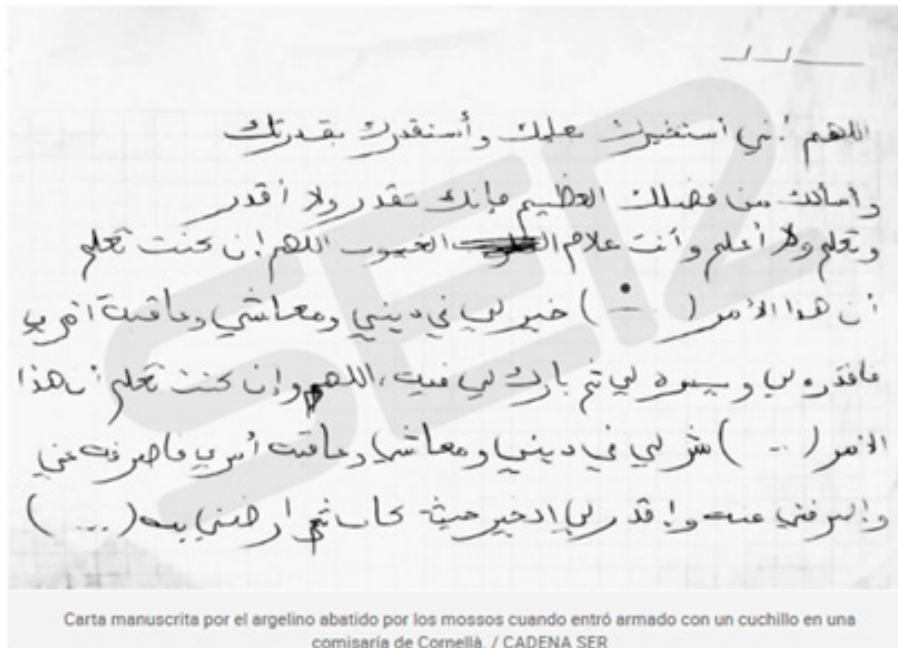 اللهم أني أستخيرك بعلمك وأستقدرك بقدرتك
وأسألك من فضلك العظيم فإنك تقدر ولا أقدر
وتعلم ولا أعلم وأنت علام الغيوب اللهم إن كنت تعلم
أن هذا الأمر ( ... ) خير لي في ديني ومعاشي وعاقبة أمري
فاقدره لي ويسره لي ثم بارك لي فيه، اللهم وإن كنت تعلم أن هذا
الأمر ( .. ) شر لي في ديني ومعاشي وعاقبة أمري فاصرفه عني
واصرفني عنه واقدر لي الخير حيث كان ثم ارضني به ( ... )
SER
Carta manuscrita por el argelino abatido por los mossos cuando entró armado con un cuchillo en una
comisaría de Cornellà. / CADENA SER